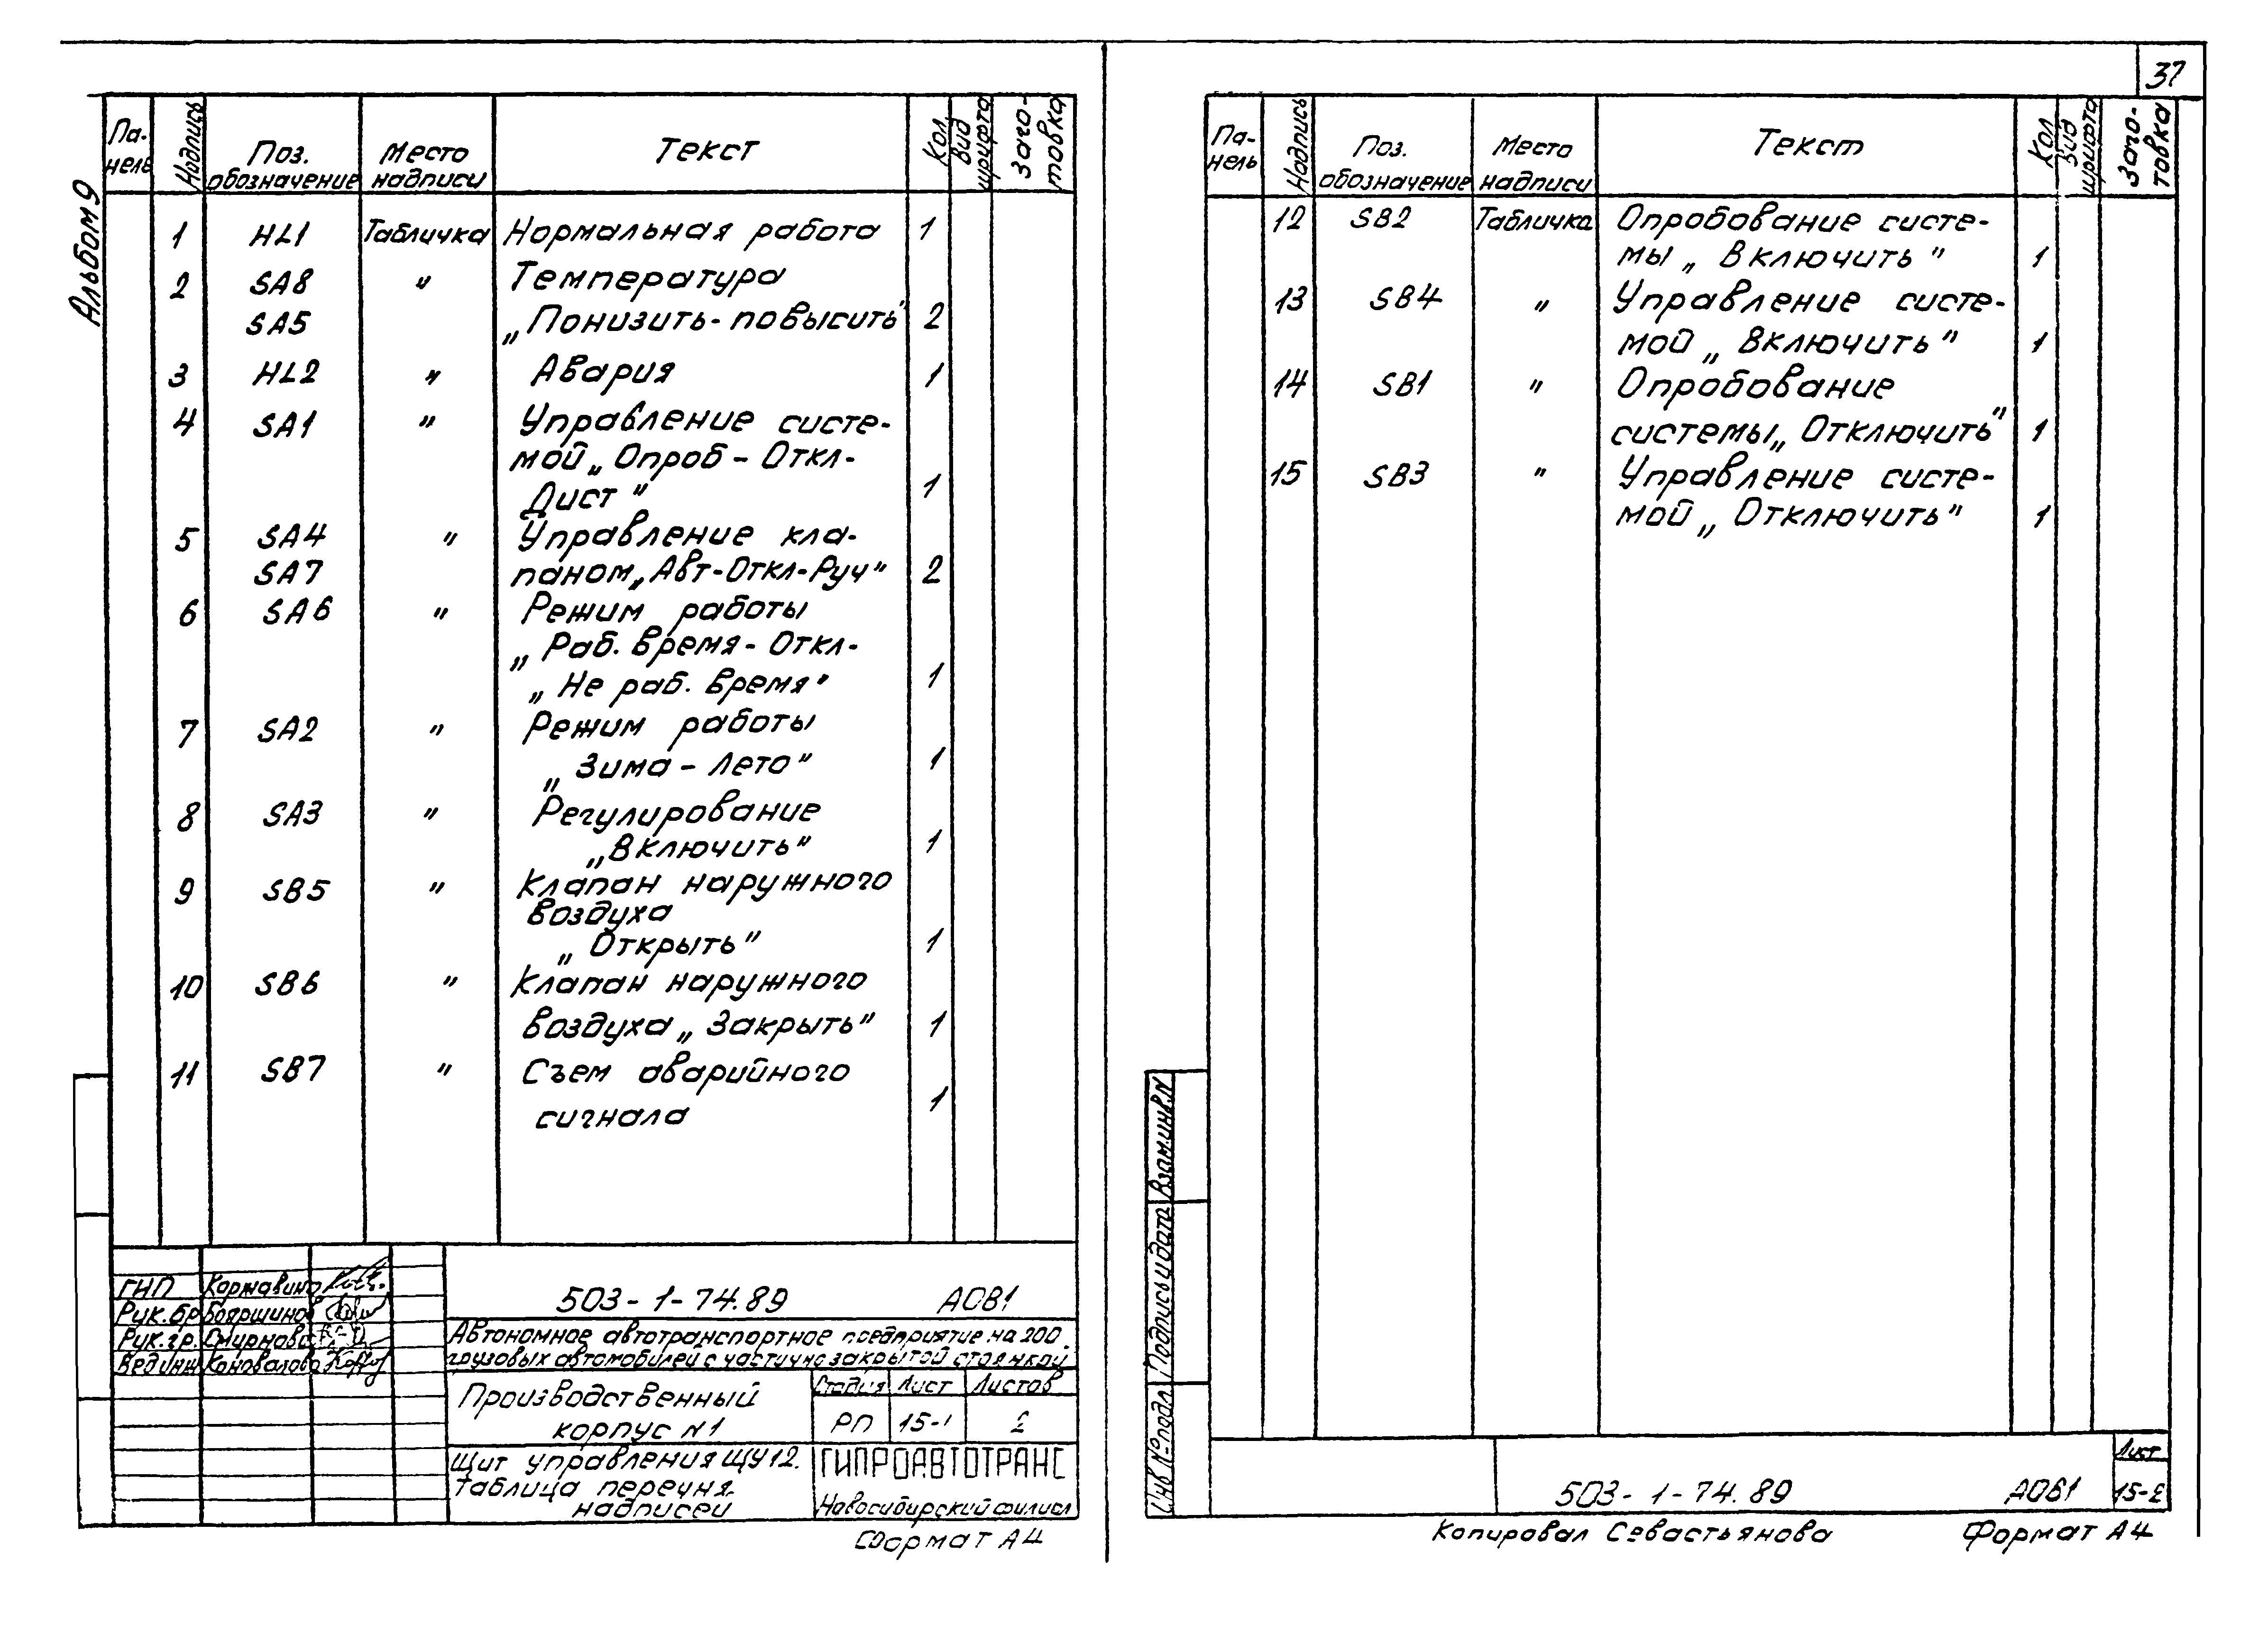 37
Альбом 9
Па-
нель
Надпись
Поз.
обозначение
Место
надписи
Текст
Кол
Вид
шрифта
Заго-
товка
1 HL1 Табличка Нормальная работа 1
2 SA8 " Температура
SA5 „Понизить-повысить" 2
3 HL2 " Авария 1
4 SA1 " Управление систе-
мой „Опроб - Откл-
Дист" 1
5 SA4 " Управление кла-
SA7 паном „Авт-Откл-Руч" 2
6 SA6 " Режим работы
„Раб. время - Откл-
„Не раб. время" 1
7 SA2 " Режим работы
„Зима - Лето" 1
8 SA3 " Регулирование
„Включить" 1
9 SB5 " Клапан наружного
воздуха
„Открыть" 1
10 SB6 " Клапан наружного
воздуха „Закрыть" 1
11 SB7 " Съем аварийного
сигнала 1
ГИП Коржавина
Рук.бр. Бояршинов
Рук.гр. Смирнова
Вед инж Коновалова
503-1-74.89 АОВ1
Автономное автотранспортное предприятие на 200
грузовых автомобилей с частично закрытой стоянкой
Производственный
корпус N1
Стадия Лист Листов
РП 15-1 2
Щит управления ЩУ12.
Таблица перечня
надписей
ГИПРОАВТОТРАНС
Новосибирский филиал
Формат А4
Па-
нель
Надпись
Поз.
обозначение
Место
надписи
Текст
Кол
Вид
шрифта
Заго-
товка
12 SB2 Табличка Опробование систе-
мы „Включить" 1
13 SB4 " Управление систе-
мой „Включить" 1
14 SB1 " Опробование
системы „Отключить" 1
15 SB3 " Управление систе-
мой „Отключить" 1
Взам.инв.N
Подпись и дата
Инв №подл.
503-1-74.89 АОВ1
Лист
15-2
Копировал Севастьянова Формат А4